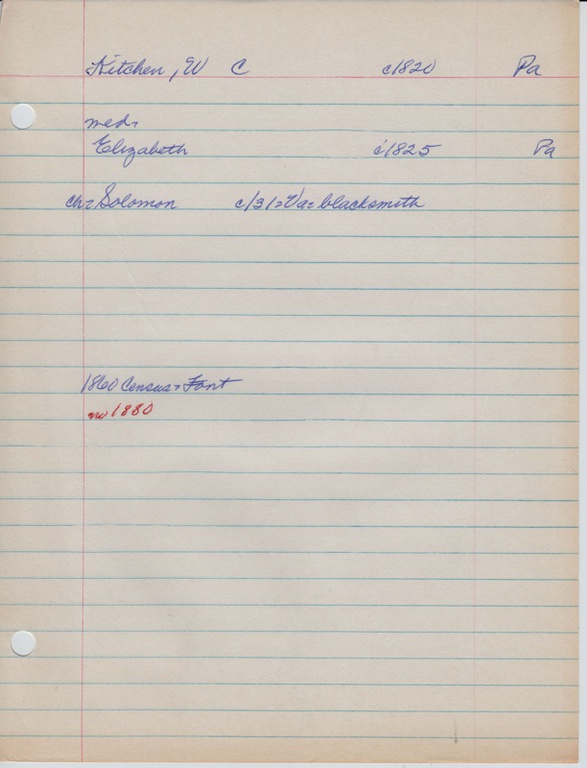 Kitchen, W C c1820 Pa
med-
Elizabeth c1825 Pa
ch= Solomon c/31=Va= blacksmith
1860 Census= Font
no 1880